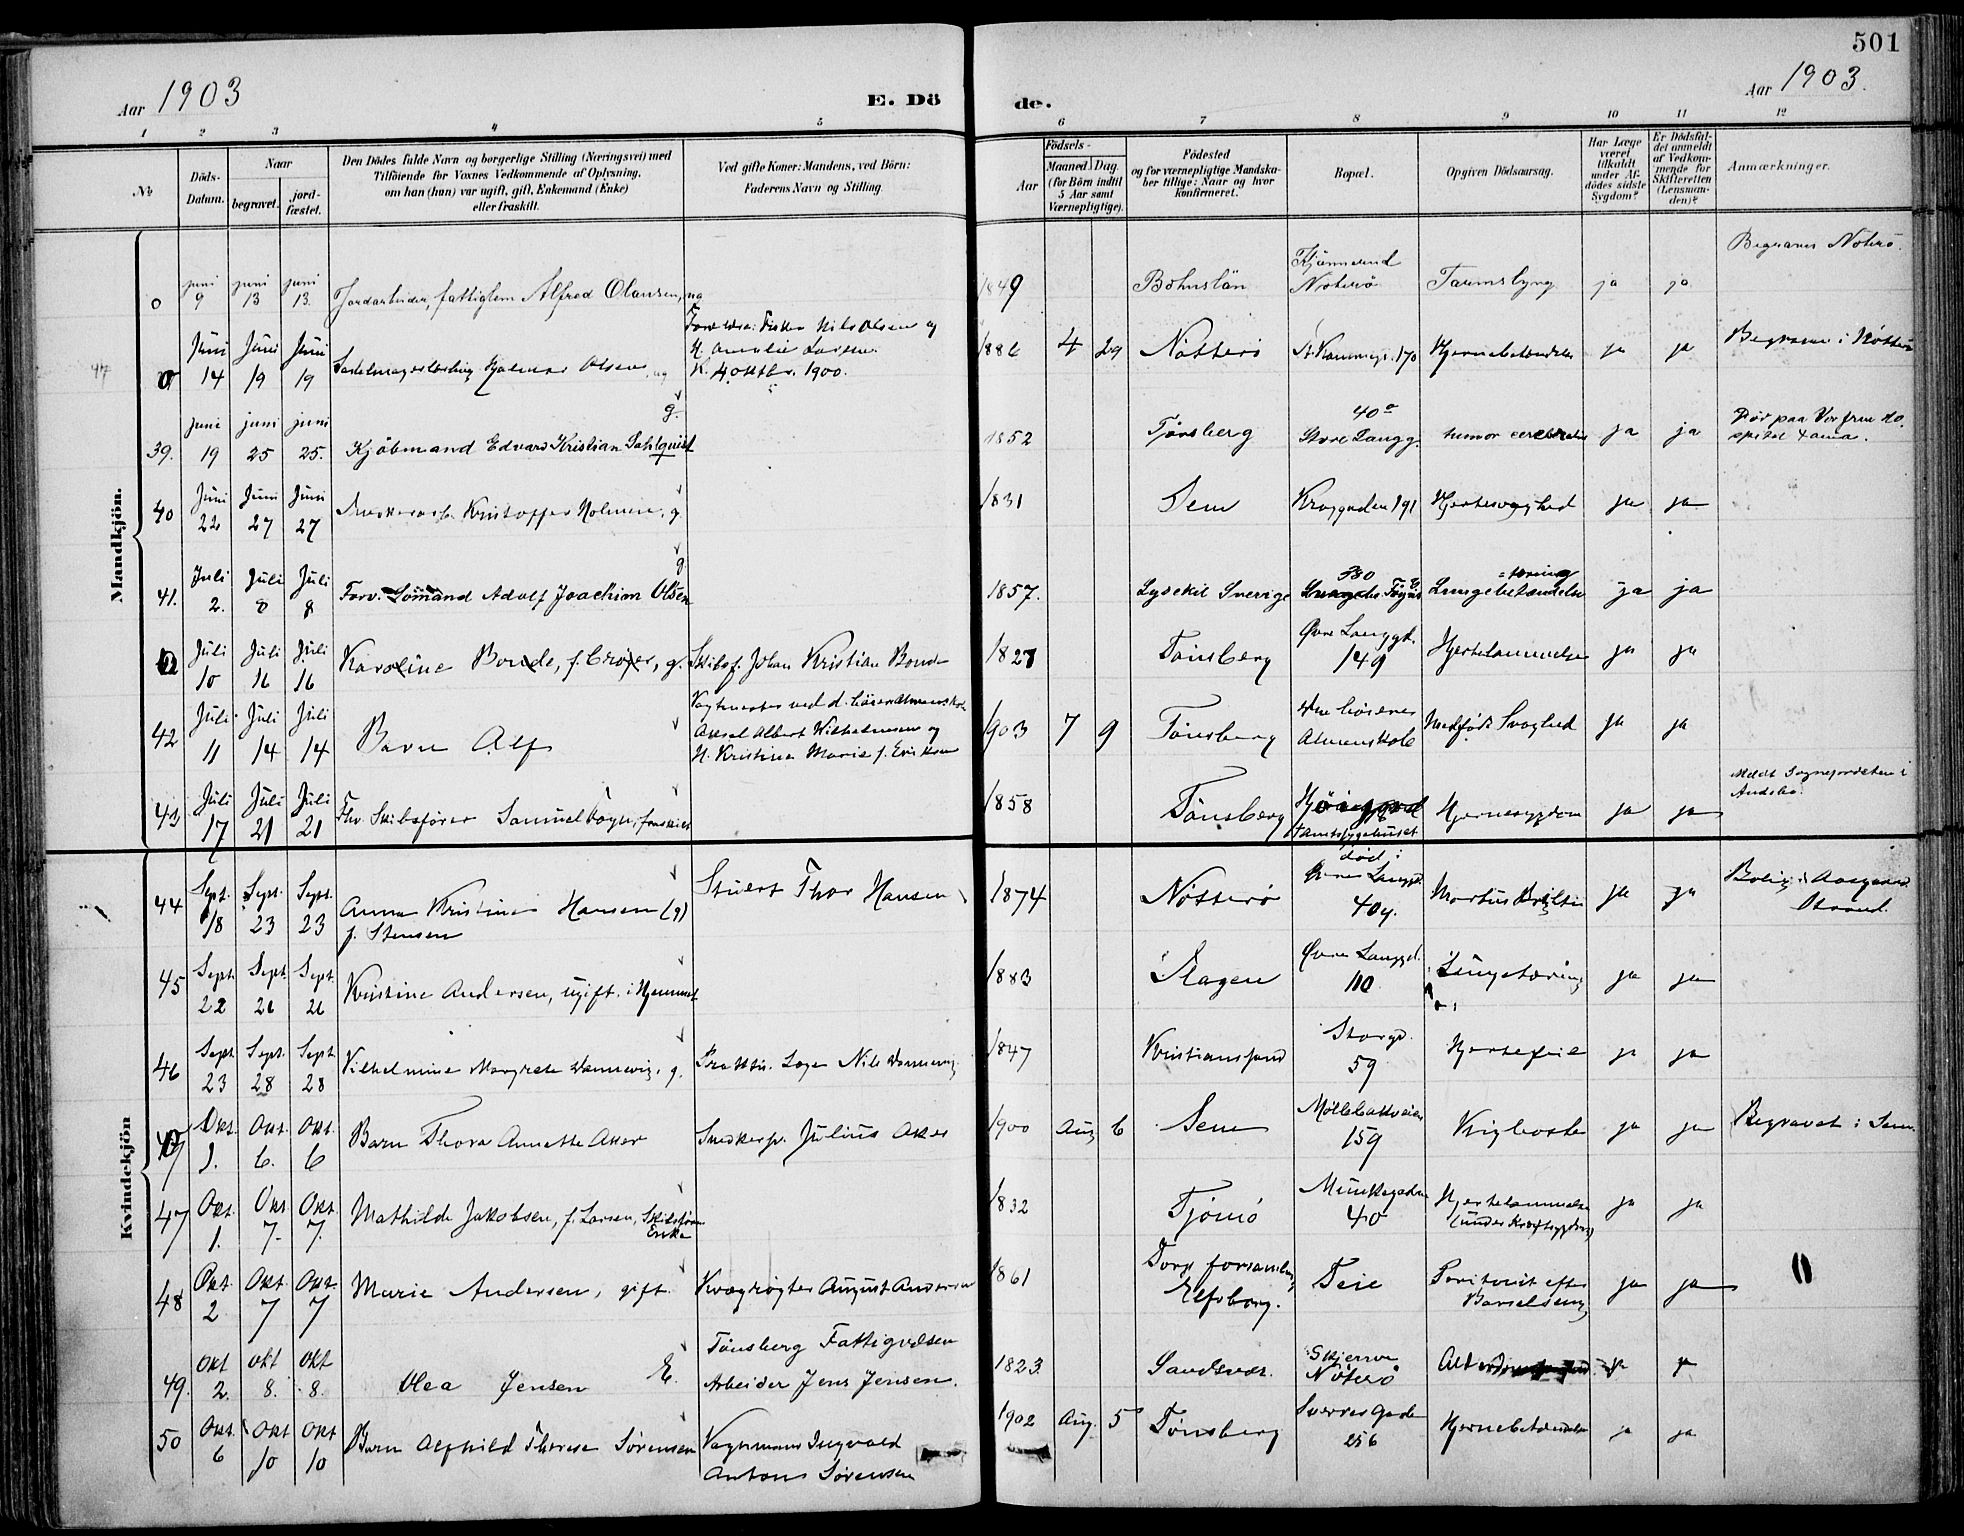 501
Aar 1903
E. Dö
de.
Aar 1903.
1 2 3 4 5 6 7 8 9 10 11 12
No
Döds-
Datum.
Naar
begravet.
jord-
fæstet.
Den Dödes fulde Navn og borgerlige Stilling (Næringsvei) med
Tilföiende for Voxnes Vedkommende af Oplysning,
om han (hun) var ugift, gift, Enkemand (Enke)
eller fraskilt.
Ved gifte Koner: Mandens, ved Börn:
Faderens Navn og Stilling.
Födsels-
Aar
Maaned. Dag.
(for Börn indtil
5 Aar samt
Værnepligtige).
Födested
og for værnepligtige Mandska-
ber tillige: Naar og hvor
konfirmeret.
Bopæl.
Opgiven Dödsaarsag.
Har Læge
været
tilkaldt
under Af-
dödes sidste
Sygdom?
Er Dödsfal-
det anmeldt
af Vedkom-
mende for
Skifteretten
(Lensman-
den)?
Anmærkninger.
Mandkjön.
0 juni 9 juni 13 juni 13. Jordarbeider, fattiglem Alfred Olausen, ug 1849 Bohuslän Nöterö Tarmslyng ja ja Begraves Nöterö.
0 Juni 14 Juni 19 Juni 19 Sadelmagerlærling Hjalmar Olsen, ug
Forældre: Fisker Nils Olsen og
H. Amalie Larsen.
K. 4 oktbr. 1900.
1886 4 29 Nötterö 170 Hjernebetændelse ja ja Begraven i Nötterö
39. juni 19 juni 25 juni 25. Kjöbmand Edvard Kristian Sahlquist g. 1852 Tönsberg 40a Store Langg. tumor cerebri ja ja Död paa Vor frue Ho-
spital
40 Juni 22 Juni 27 Juni 27 Kristoffer Holmen, g. 1831 Sem 191 Hjertesvaghed ja ja
41. Juli 2. Juli 8 Juli 8 Forv. Sömand Adolf Joachim Olsen g 1857. Lysekil Sverige 380 Lungebetændelse =tæring ja ja
Juli 10 Juli 16 Juli 16 Karoline Bonde, f. , g. Skibsf. Johan Kristian Bonde 1827 Tönsberg Övre Langgd. 149 Hjertelammelse ja ja
42 Juli 11 Juli 14 Juli 14 Barn Alf
Vagtmester ved d. höiere Almenskole
Axsel Albert Wilhelmsen og
H. Kristine Marie f. Eriksen
1903 7 9 Tönsberg Den höiere
Almenskole Medfödt Svaghed ja ja
43 Juli 17 Juli 21 Juli 21 Fhv. Skibsförer Samuel Foyn, fraskilt 1858 Tönsberg
Amtssygehuset Hjernesygdom ja ja Meldt Sogneprästen i
Kvindekjön
44 Sept. 18 Sept. 23 Sept. 23 Anna Kristine Hansen (g)
f. Stensen
Stuert Thor Hansen 1874 Nötterö död i
Övre Langgd.
40g. Morbus Brightii ja ja Bolig: Aasgaard-
Strand.
45 Sept. 22 Sept. 26 Sept. 26 Kristine Andersen, ugift. i Hjemmet 1883 Slagen Övre Langgd. 110 Lungetæring ja ja
46 Sept. 23 Sept. 28 Sept. 28 Vilhelmine Margrete Dannevig, g. Prakt. Læge Nils Dannevig 1847 Kristianssand Storgd. 59 Hjertefeil ja ja
Okt. 1. Okt. 6. Okt. 6 Barn Thora Annette Aker Snekkersv. Julius Aker 1900 Aug 6 Sem Möllebakveien 159 Kighoste ja ja Begravet i Sem.
47 Okt. 1. Okt 7. Okt. 7. Mathilde Jakobsen, f. Larsen, Skibsförer
Enke 1832 Tjömö Munkegaden 40 Hjertelammelse
(under Kræftsygdom) ja ja
48 Okt. 2 Okt. 7 Okt. 7 Marie Andersen, gift. Kvægrögter August Andersen 1861 Torp forsamling,
Elfsborg. Teie Peritonit efter
Barselseng ja ja
49. Okt 2. Okt 8. Okt 8. Olea Jensen E.
Tönsberg Fattigvæsen
Arbeider Jens Jensen. 1823. Sandsvær. Skjerve
Nöterö ja
50 Okt. 6 Okt 10 Okt 10 Barn Alfhild Therese Sörensen Vognmand Ingvald
Antons Sörensen 1902 Aug. 5 Tönsberg Sverres Gade
256 Hjernebetændelse ja ja